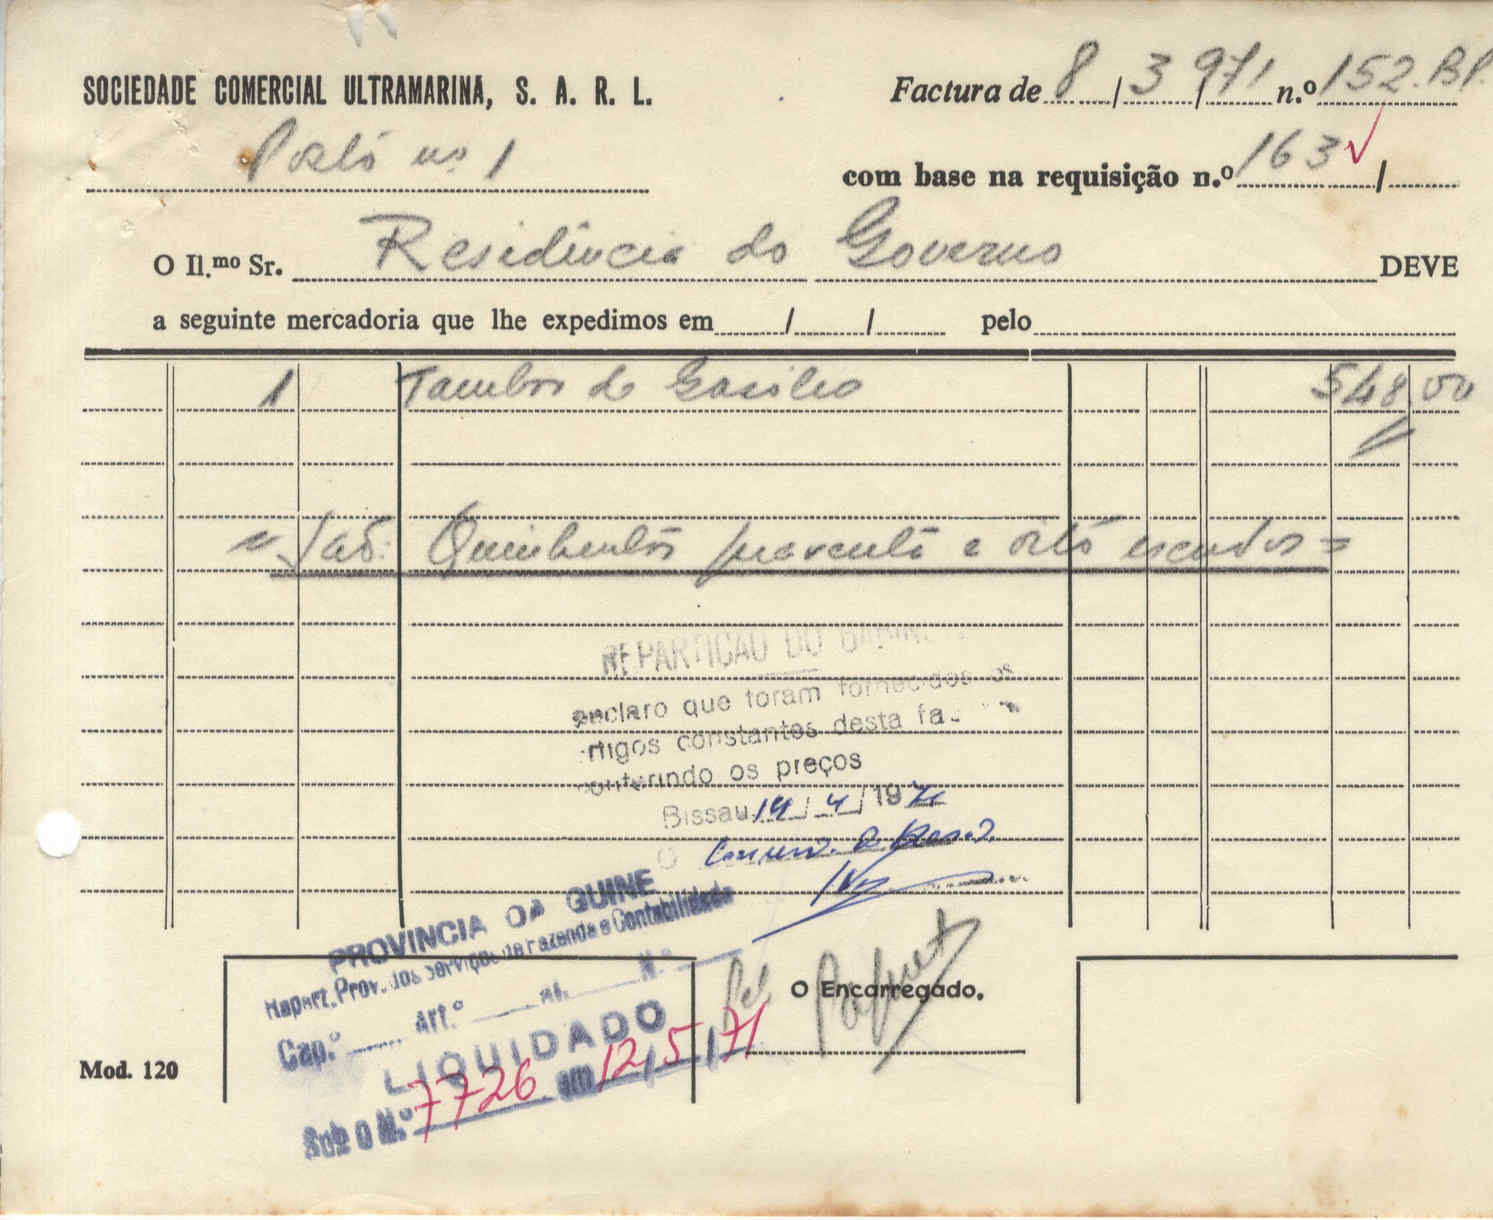 SOCIEDADE COMERCIAL ULTRAMARINA, S. A. R. L.
Factura de 8/3/971 n.º 152.BP.
Posto nº 1
com base na requisição n.º 163/
O Il.mo Sr. Residência do Governo DEVE
a seguinte mercadoria que lhe expedimos em / / pelo
1 Tambor de Gasóleo 548,00
São: Quinhentos quarenta e oito escudos =
REPARTIÇÃO DO
declaro que foram fornecidos os
artigos constantes desta
conferindo os preços
Bissau 14/4/1971
O
PROVINCIA DA GUINE
Repart. Prov. dos Serviços de Fazenda e Contabilidade
Cap.º Art.º N.º
LIQUIDADO
Sob o N.º 7726 em 12/5/71
O Encarregado,
Mod. 120